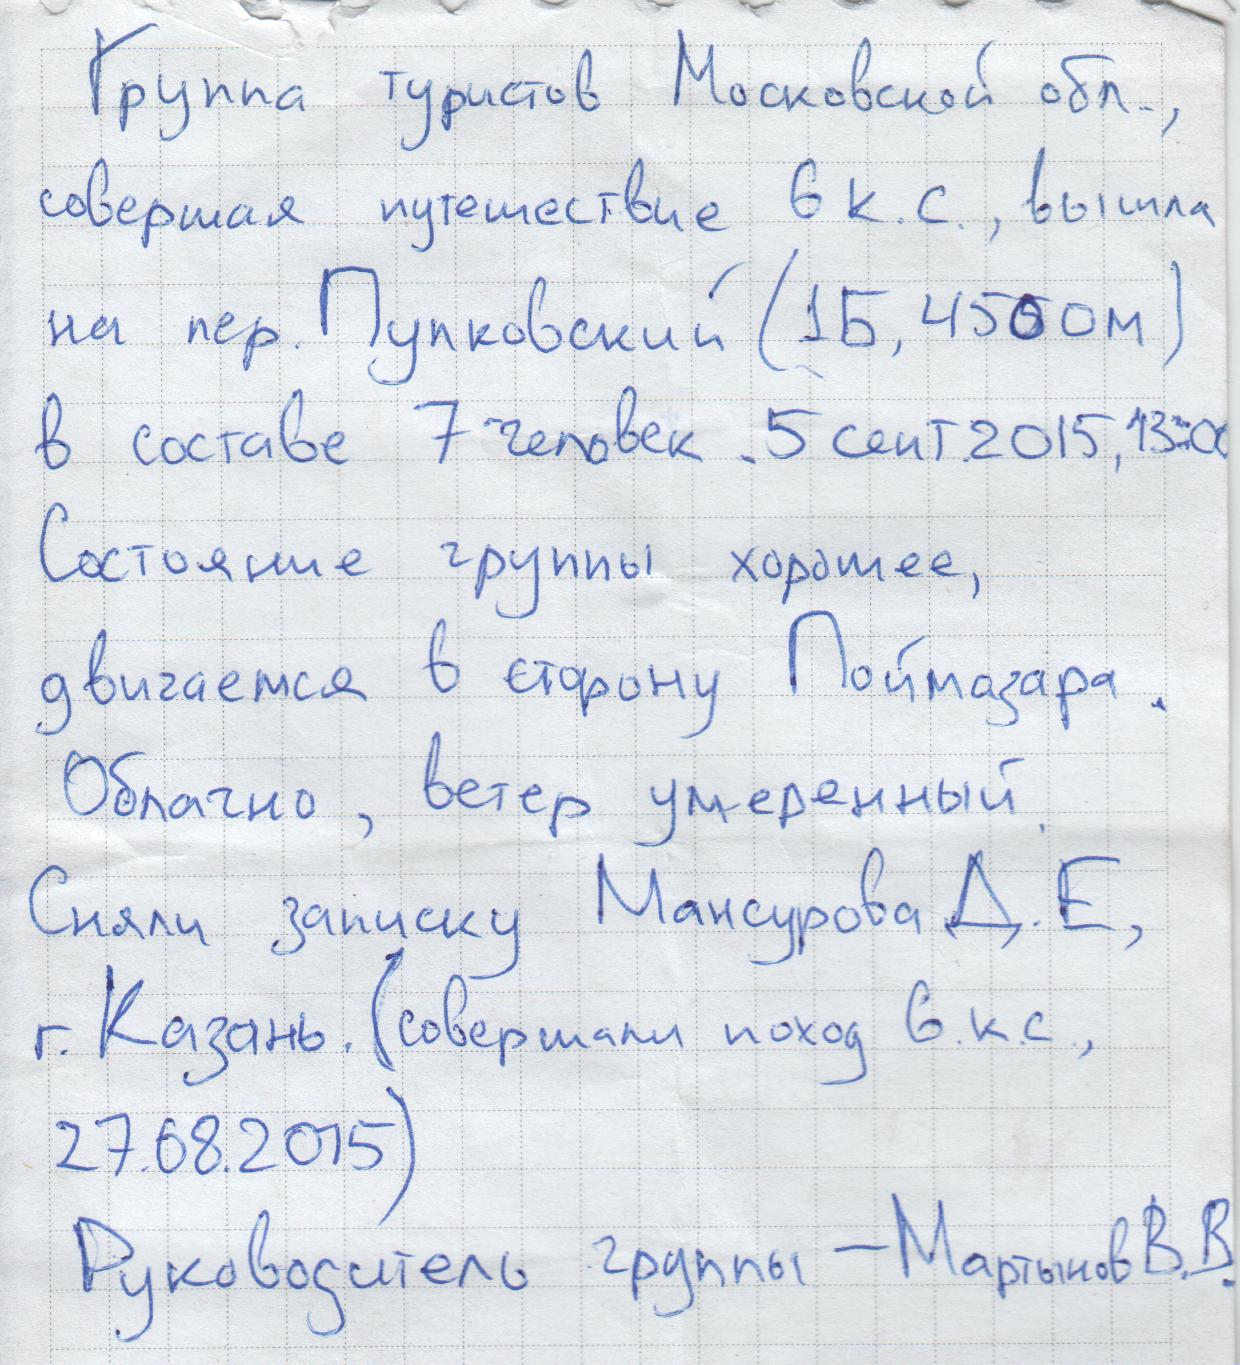 Группа туристов Московской обл.,
совершая путешествие 6 к.с., вышла
на пер. Пупковский (1Б, 4500м)
в составе 7 человек. 5 сент.2015, 13:00
Состояние группы хорошее,
двигаемся в сторону Поймазара.
Облачно, ветер умеренный.
Сняли записку Мансурова Д.Е,
г. Казань. (совершали поход 6.к.с.,
27.08.2015)
Руководитель группы — Мартынов В.В.